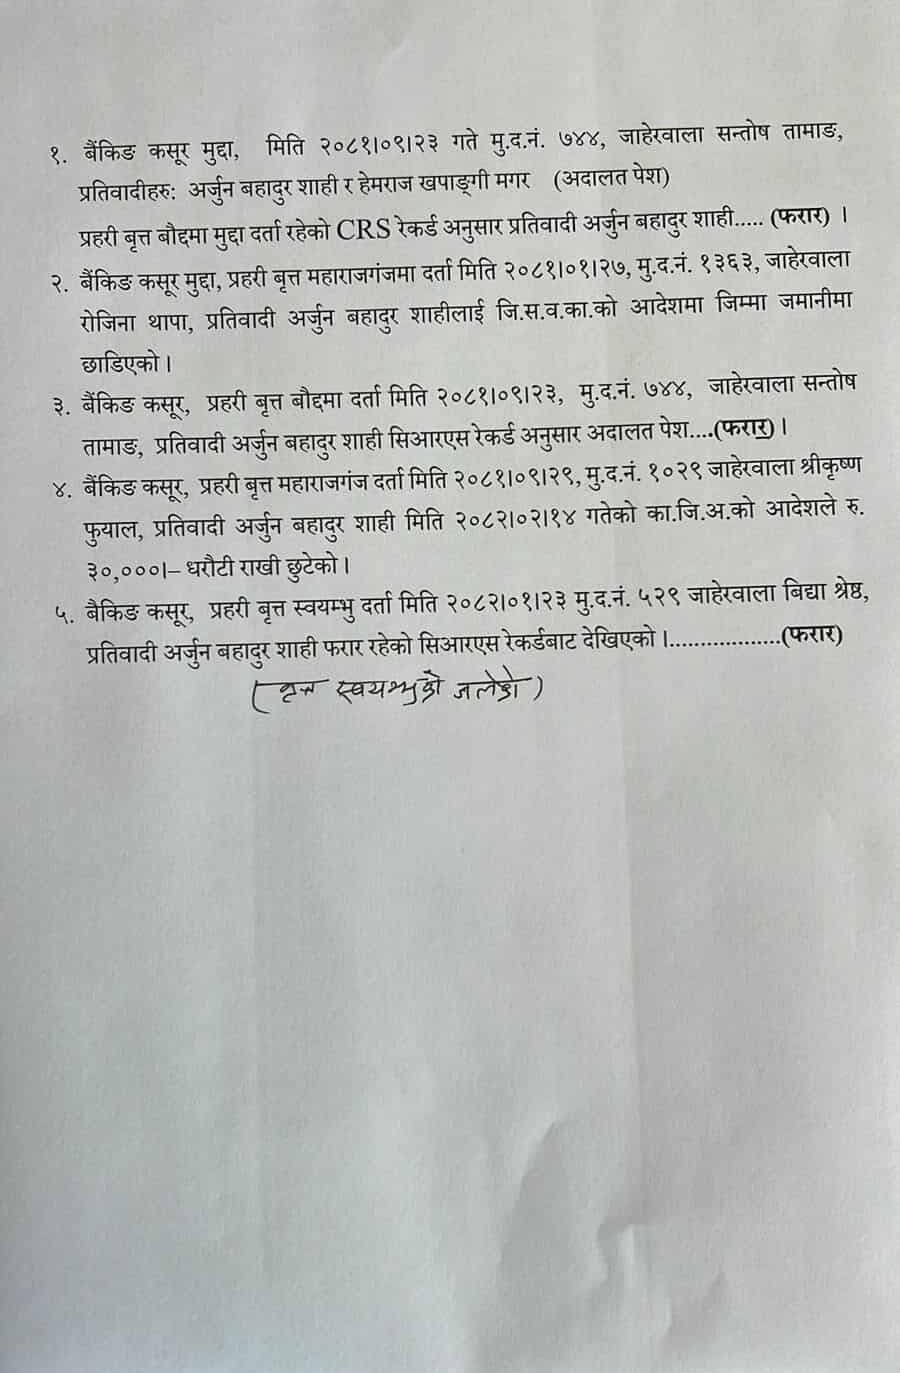 १. बैंकिङ कसूर मुद्दा, मिति २०८१।०९।२३ गते मु.द.नं. ७४४, जाहेरवाला सन्तोष तामाङ,
प्रतिवादीहरुः अर्जुन बहादुर शाही र हेमराज खपाङ्गी मगर (अदालत पेश)
प्रहरी बृत्त बौद्दमा मुद्दा दर्ता रहेको CRS रेकर्ड अनुसार प्रतिवादी अर्जुन बहादुर शाही..... (फरार) ।
२. बैंकिङ कसूर मुद्दा, प्रहरी बृत्त महाराजगंजमा दर्ता मिति २०८१।०१।२७, मु.द.नं. १३६३, जाहेरवाला
रोजिना थापा, प्रतिवादी अर्जुन बहादुर शाहीलाई जि.स.व.का.को आदेशमा जिम्मा जमानीमा
छाडिएको ।
३. बैंकिङ कसूर, प्रहरी बृत्त बौद्दमा दर्ता मिति २०८१।०९।२३, मु.द.नं. ७४४, जाहेरवाला सन्तोष
तामाङ, प्रतिवादी अर्जुन बहादुर शाही सिआरएस रेकर्ड अनुसार अदालत पेश....(फरार) ।
४. बैंकिङ कसूर, प्रहरी बृत्त महाराजगंज दर्ता मिति २०८१।०९।२९, मु.द.नं. १०२९ जाहेरवाला श्रीकृष्ण
फुयाल, प्रतिवादी अर्जुन बहादुर शाही मिति २०८२।०२।१४ गतेको का.जि.अ.को आदेशले रु.
३०,०००।– धरौटी राखी छुटेको ।
५. बैकिङ कसूर, प्रहरी बृत्त स्वयम्भु दर्ता मिति २०८२।०१।२३ मु.द.नं. ५२९ जाहेरवाला बिद्या श्रेष्ठ,
प्रतिवादी अर्जुन बहादुर शाही फरार रहेको सिआरएस रेकर्डबाट देखिएको ।..................(फरार)
(बृत्त स्वयम्भुको